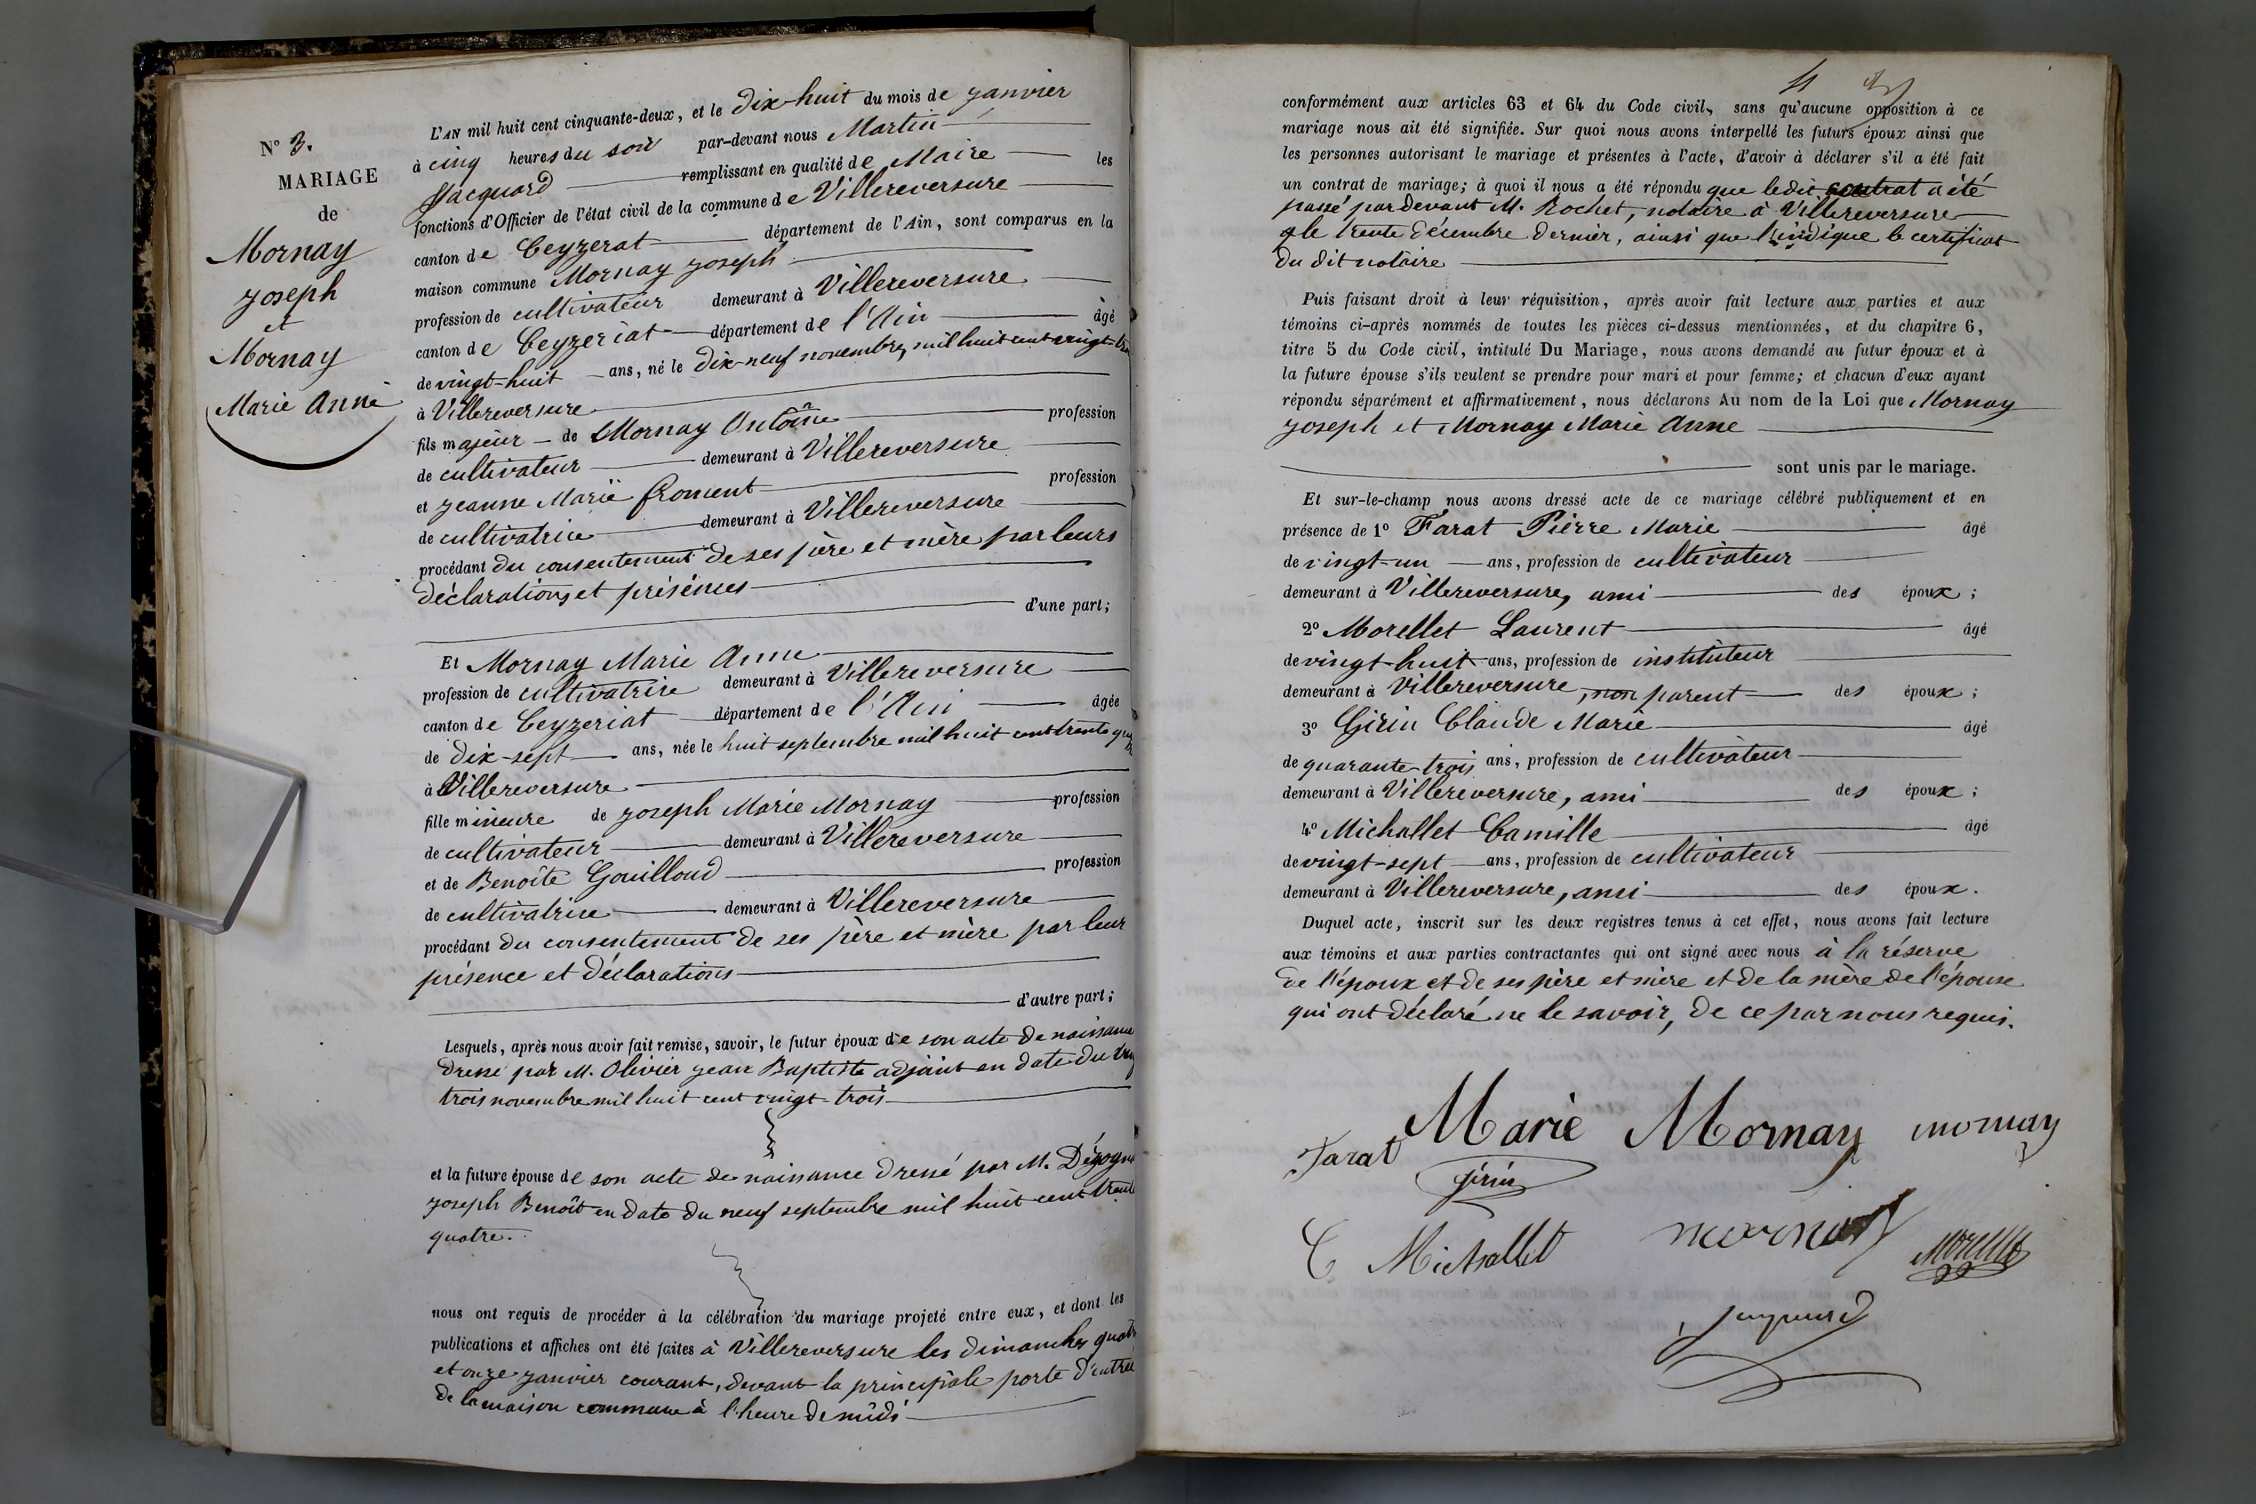 N° 3.
MARIAGE
de
Mornay
Joseph
et
Mornay
Marie Anne
L'AN mil huit cent cinquante-deux, et le dix-huit du mois de Janvier
à cinq heures du soir par-devant nous Martin
Jacquard remplissant en qualité de Maire les
fonctions d'Officier de l'état civil de la commune de Villereversure
canton de Ceyzerat département de l'Ain, sont comparus en la
maison commune Mornay Joseph
profession de cultivateur demeurant à Villereversure
canton de Ceyzeriat département de l'Ain âgé
de vingt-huit ans, né le dix-neuf novembre, mil huit cent vingt-
à Villereversure
fils majeur de Mornay Antoine profession
de cultivateur demeurant à Villereversure
et Jeanne Marie Froment profession
de cultivatrice demeurant à Villereversure
procédant du consentement de ses père et mère par leurs
déclarations et présences
d'une part;
Et Mornay Marie Anne
profession de cultivatrice demeurant à Villereversure
canton de Ceyzeriat département de l'Ain âgée
de dix-sept ans, née le huit septembre mil huit cent trente
à Villereversure
fille mineure de Joseph Marie Mornay profession
de cultivateur demeurant à Villereversure
et de Benoîte Gouilloud profession
de cultivatrice demeurant à Villereversure
procédant du consentement de ses père et mère par leur
présence et déclarations
d'autre part;
Lesquels, après nous avoir fait remise, savoir, le futur époux de son acte de naissance
dressé par M. Olivier Jean Baptiste adjoint en date du
trois novembre mil huit cent vingt-trois
et la future épouse de son acte de naissance dressé par M.
Joseph Benoît en date du neuf septembre mil huit cent trente
quatre.
nous ont requis de procéder à la célébration du mariage projeté entre eux, et dont les
publications et affiches ont été faites à Villereversure les dimanches quatre
et onze Janvier courant, devant la principale porte d'entrée
de la maison commune à l'heure de midi
4
conformément aux articles 63 et 64 du Code civil, sans qu'aucune opposition à ce
mariage nous ait été signifiée. Sur quoi nous avons interpellé les futurs époux ainsi que
les personnes autorisant le mariage et présentes à l'acte, d'avoir à déclarer s'il a été fait
un contrat de mariage; à quoi il nous a été répondu que ledit contrat a été
passé par devant M. Rochet, notaire à Villereversure
le trente décembre dernier, ainsi que l'indique le certificat
du dit notaire
Puis faisant droit à leur réquisition, après avoir fait lecture aux parties et aux
témoins ci-après nommés de toutes les pièces ci-dessus mentionnées, et du chapitre 6,
titre 5 du Code civil, intitulé Du Mariage, nous avons demandé au futur époux et à
la future épouse s'ils veulent se prendre pour mari et pour femme; et chacun d'eux ayant
répondu séparément et affirmativement, nous déclarons Au nom de la Loi que Mornay
Joseph et Mornay Marie Anne
sont unis par le mariage.
Et sur-le-champ nous avons dressé acte de ce mariage célébré publiquement et en
présence de 1° Farat Pierre Marie âgé
de vingt-un ans, profession de cultivateur
demeurant à Villereversure, ami des époux ;
2° Morellet Laurent âgé
de vingt-huit ans, profession de instituteur
demeurant à Villereversure, non parent des époux ;
3° Girin Claude Marie âgé
de quarante-trois ans, profession de cultivateur
demeurant à Villereversure, ami des époux ;
4° Michallet Camille âgé
de vingt-sept ans, profession de cultivateur
demeurant à Villereversure, ami des époux.
Duquel acte, inscrit sur les deux registres tenus à cet effet, nous avons fait lecture
aux témoins et aux parties contractantes qui ont signé avec nous à la réserve
de l'époux et de ses père et mère et de la mère de l'épouse
qui ont déclaré ne le savoir, de ce par nous requis.
Marie Mornay mornay
Farat
girin
C Michallet mornay Morellet
Jacquard